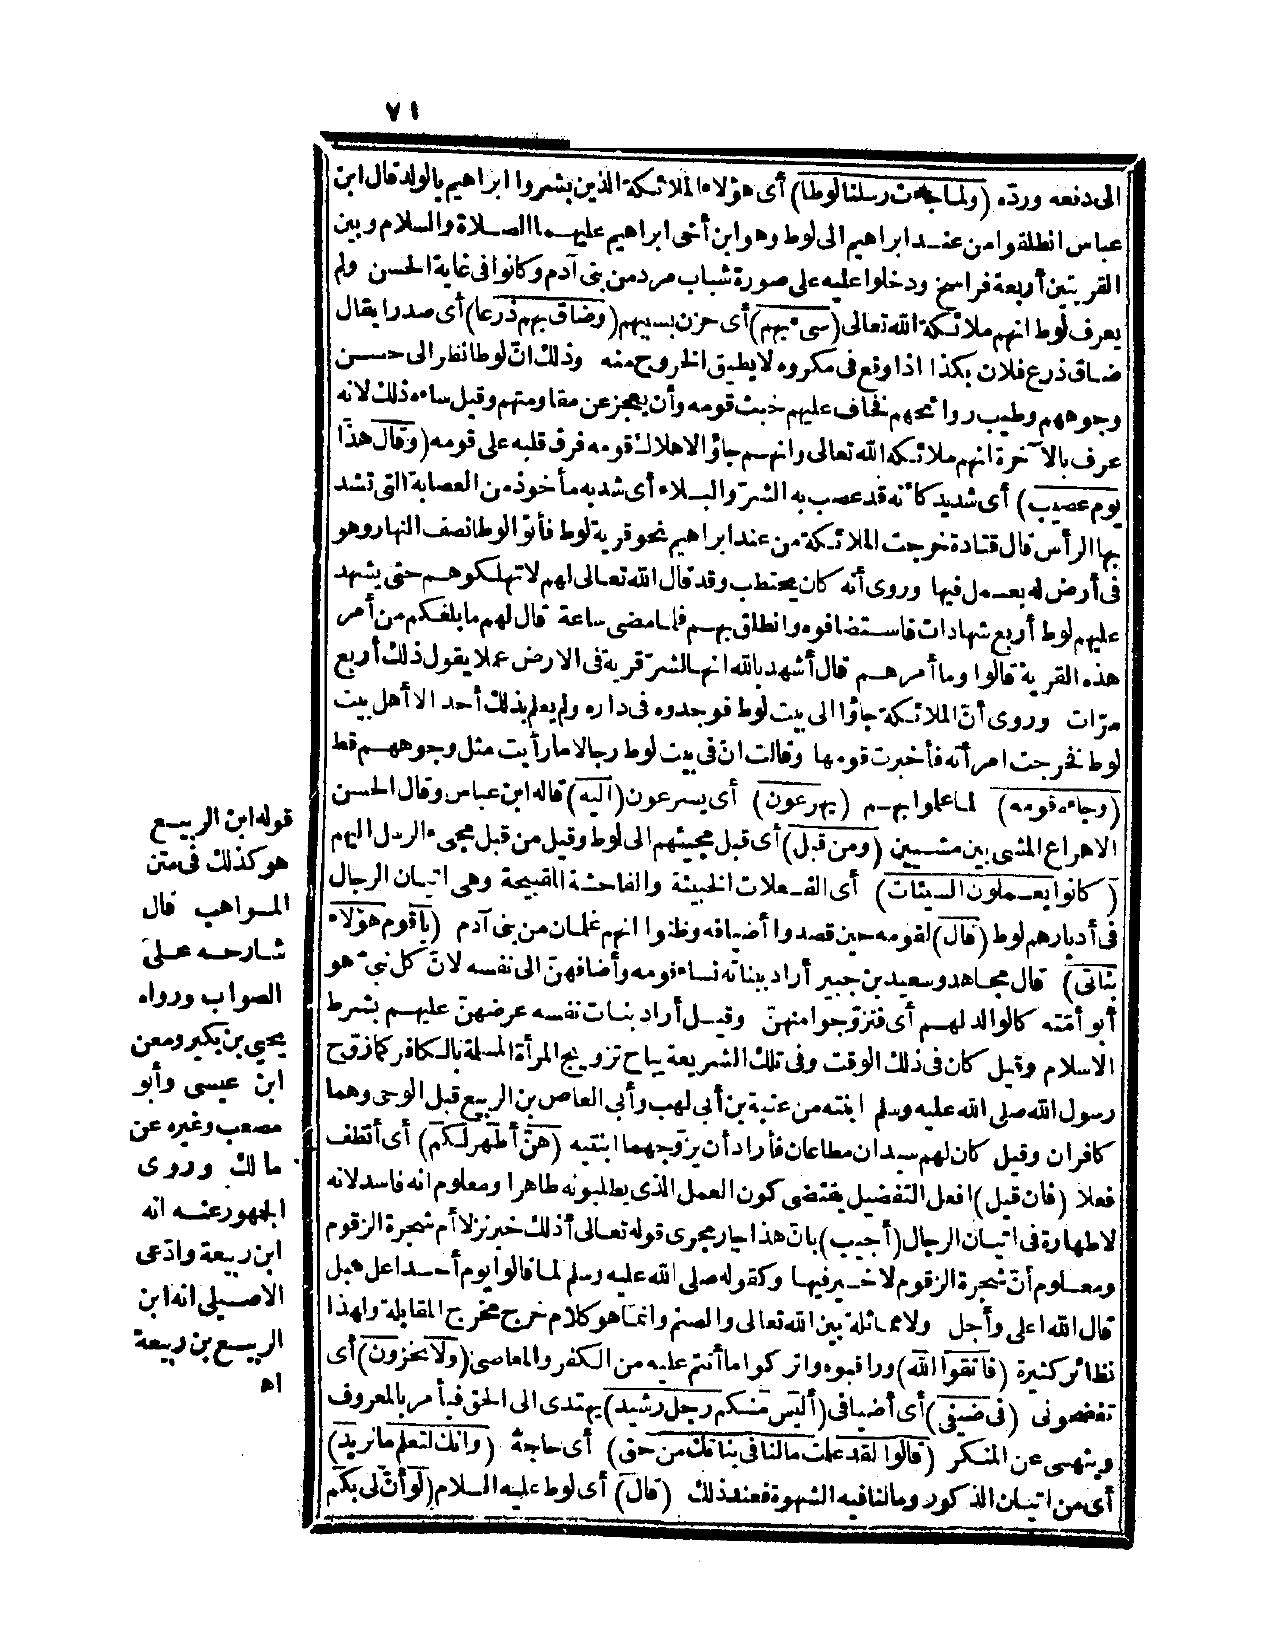 ٧١
الى دفعه وردّه (ولما جاءت رسلنا لوطا) أى هؤلاء الملائكة الذين بشروا ابراهيم بالولد قال ابن
عباس انطلقوا من عند ابراهيم الى لوط وهو ابن أخى ابراهيم عليهما الصلاة والسلام وبين
القريتين أربعة فراسخ ودخلوا عليه على صورة شباب مرد من بنى آدم وكانوا فى غاية الحسن ولم
يعرف لوط انهم ملائكة الله تعالى (سىء بهم) أى حزن بسببهم (وضاق بهم ذرعا) أى صدرا يقال
ضاق ذرع فلان بكذا اذا وقع فى مكروه لا يطيق الخروج منه وذلك انّ لوطا نظر الى حسن
وجوههم وطيب روائحهم فخاف عليهم خبث قومه وأن يعجز عن مقاومتهم وقيل ساءه ذلك لانه
عرف بالآخرة انهم ملائكة الله تعالى وانهم جاؤا لاهلاك قومه فرق قلبه على قومه (وقال هذا
يوم عصيب) أى شديد كأنه قد عصب به الشرّ والبلاء أى شد به مأخوذ من العصابة التى تشد
بها الرأس قال قتادة خرجت الملائكة من عند ابراهيم نحو قرية لوط فأتوا لوطا نصف النهار وهو
فى أرض له يعمل فيها وروى أنه كان يحتطب وقد قال الله تعالى لهم لا تهلكوهم حتى يشهد
عليهم لوط أربع شهادات فاستضافوه وانطلق بهم فلما مضى ساعة قال لهم ما بلغكم من أمر
هذه القرية قالوا وما أمرهم قال أشهد بالله انها لشرّ قرية فى الارض عملا يقول ذلك أربع
مرّات وروى أنّ الملائكة جاؤا الى بيت لوط فوجدوه فى داره ولم يعلم بذلك أحد الا أهل بيت
لوط فخرجت امرأته فأخبرت قومها وقالت انّ فى بيت لوط رجالا ما رأيت مثل وجوههم قط
(وجاءه قومه) لما علموا بهم (يهرعون) أى يسرعون (اليه) قاله ابن عباس وقال الحسن
الاهراع المشى بين مشيين (ومن قبل) أى قبل مجيئهم الى لوط وقيل من قبل مجىء الرسل اليهم
(كانوا يعملون السيئات) أى الفعلات الخبيثة والفاحشة القبيحة وهى اتيان الرجال
فى أدبارهم لوط (قال) لقومه حين قصدوا أضيافه وظنوا انهم غلمان من بنى آدم (يا قوم هؤلاء
بناتى) قال مجاهد وسعيد بن جبير أراد ببناته نساء قومه وأضافهنّ الى نفسه لانّ كل نبىّ هو
أبو أمّته كالوالد لهم أى فتزوّجوا منهنّ وقيل أراد بنات نفسه عرضهنّ عليهم بشرط
الاسلام وقيل كان فى ذلك الوقت وفى تلك الشريعة يباح تزويج المرأة المسلمة بالكافر كما زوّج
رسول الله صلى الله عليه وسلم ابنته من عتبة بن أبى لهب وأبى العاص بن الربيع قبل الوحى وهما
كافران وقيل كان لهم سيدان مطاعان فأراد أن يزوّجهما ابنتيه (هنّ أطهر لكم) أى أنظف
فعلا (فان قيل) افعل التفضيل يقتضى كون العمل الذى يطلبونه طاهرا ومعلوم انه فاسد لانه
لا طهارة فى اتيان الرجال (أجيب) بانّ هذا جار مجرى قوله تعالى أذلك خير نزلا أم شجرة الزقوم
ومعلوم أنّ شجرة الزقوم لا خير فيها وكقوله صلى الله عليه وسلم لما قالوا يوم أحد اعل هبل
قال الله اعلى وأجل ولا مماثلة بين الله تعالى والصنم وانما هو كلام خرج مخرج المقابلة ولهذا
نظائر كثيرة (فاتقوا الله) وراقبوه واتركوا ما أنتم عليه من الكفر والمعاصى (ولا تخزون) أى
تفضحونى (فى ضيفى) أى أضيافى (أليس منكم رجل رشيد) يهتدى الى الحق فيأمر بالمعروف
وينهى عن المنكر (قالوا لقد علمت ما لنا فى بناتك من حق) أى حاجة (وانك لتعلم ما نريد)
أى من اتيان الذكور وما لنا فيه الشهوة فعند ذلك (قال) أى لوط عليه السلام (لو أنّ لى بكم
قوله ابن الربيع
هو كذلك فى متن
المواهب قال
شارحه على
الصواب ورواه
يحيى بن بكير ومعن
ابن عيسى وأبو
مصعب وغيره عن
مالك وروى
الجمهور عنه انه
ابن ربيعة وادّعى
الاصيلى انه ابن
الربيع بن ربيعة
اه